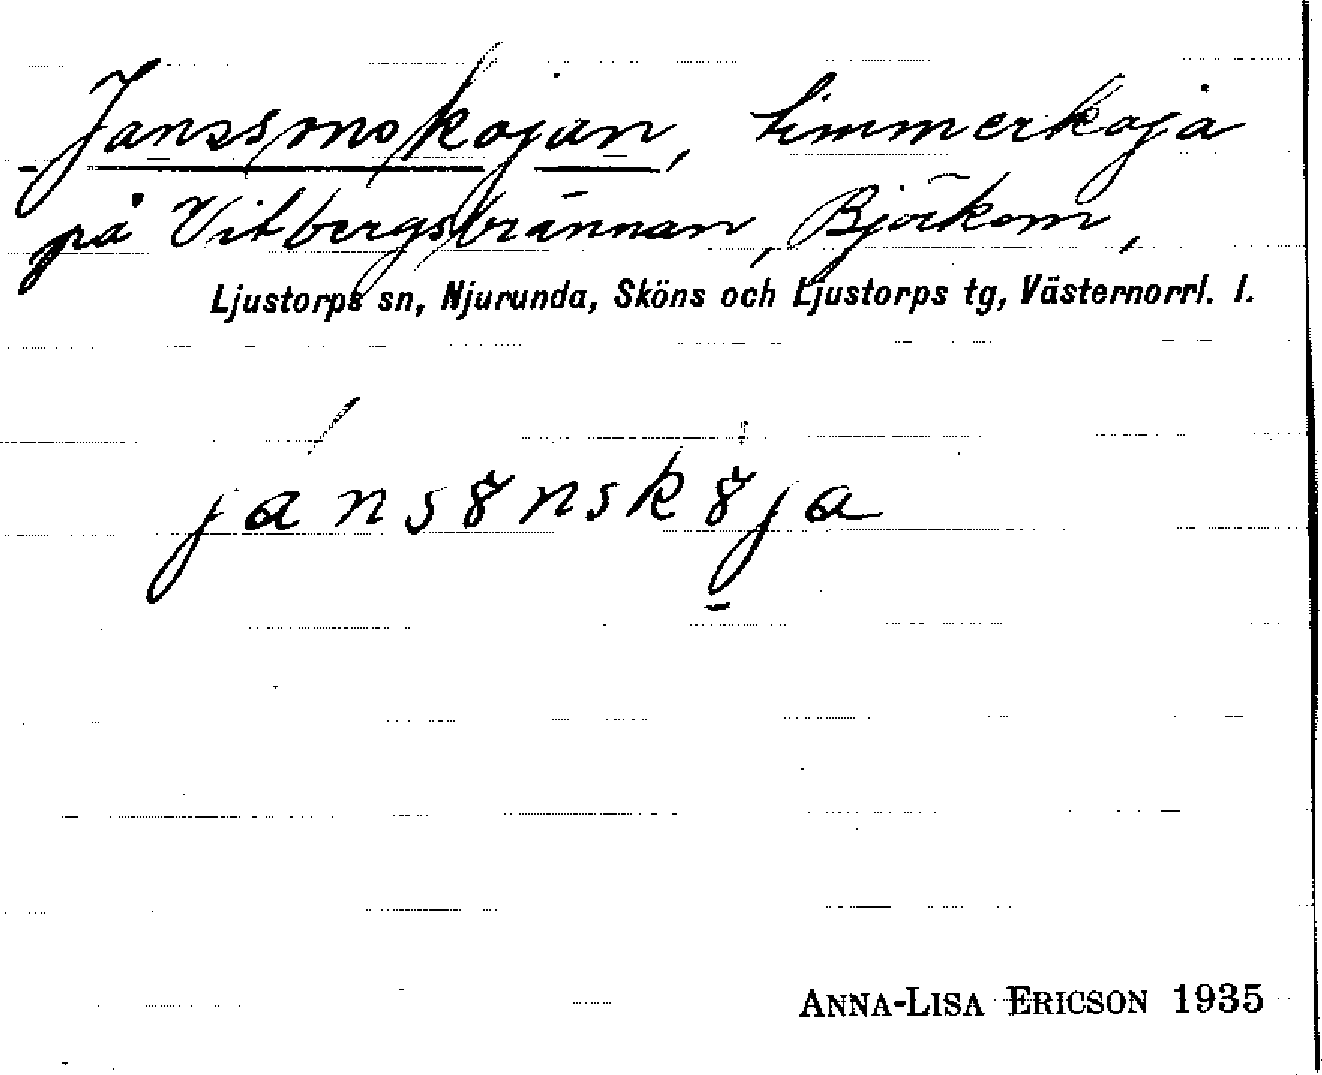 Janssonskojan, timmerkoja
på Vitbergsbrännan, Björkom,
Ljustorps sn, Njurunda, Sköns och Ljustorps tg, Västernorrl. l.
ANNA-LISA ERICSON 1935